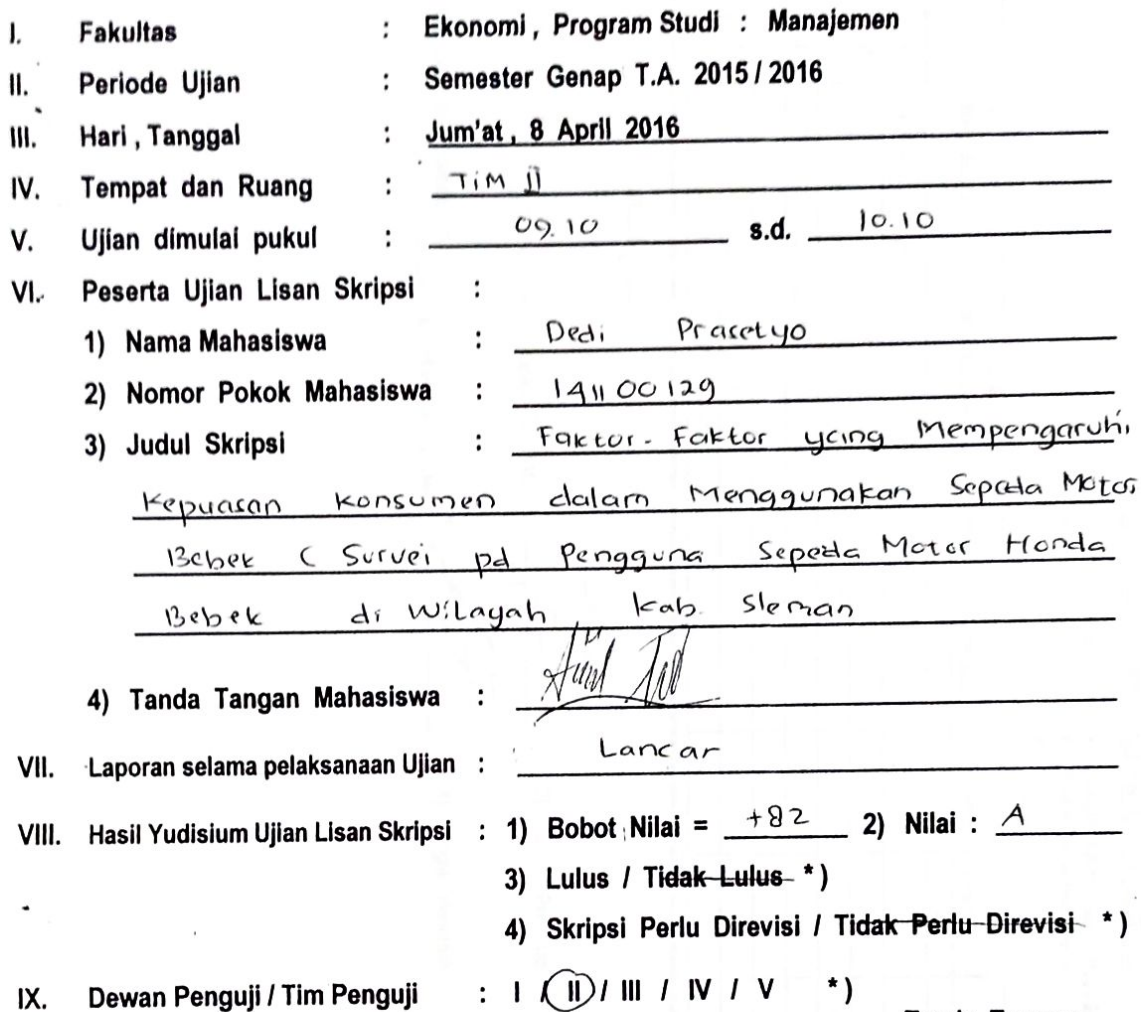 I. Fakultas : Ekonomi, Program Studi : Manajemen
II. Periode Ujian : Semester Genap T.A. 2015 / 2016
III. Hari , Tanggal : Jum'at , 8 April 2016
IV. Tempat dan Ruang : TiM II
V. Ujian dimulai pukul : 09.10 s.d. 10.10
VI. Peserta Ujian Lisan Skripsi :
1) Nama Mahasiswa : Dedi Prasetyo
2) Nomor Pokok Mahasiswa : 141100129
3) Judul Skripsi : Faktor-Faktor yang Mempengaruhi
Kepuasan Konsumen dalam Menggunakan Sepeda Motor
Bebek ( Survei pd Pengguna Sepeda Motor Honda
Bebek di Wilayah Kab. Sleman
4) Tanda Tangan Mahasiswa :
VII. Laporan selama pelaksanaan Ujian : Lancar
VIII. Hasil Yudisium Ujian Lisan Skripsi : 1) Bobot Nilai = +82 2) Nilai : A
3) Lulus / Tidak Lulus *)
4) Skripsi Perlu Direvisi / Tidak Perlu Direvisi *)
IX. Dewan Penguji / Tim Penguji : I / II / III / IV / V *)